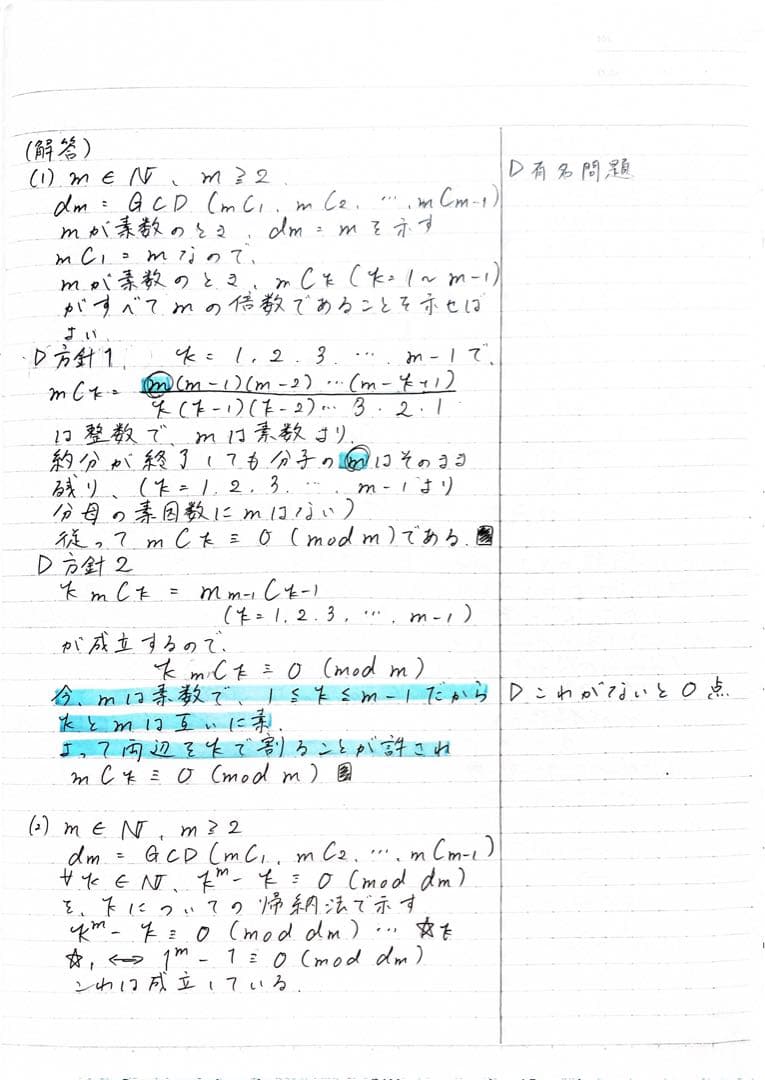 (解答)
(1) m ∈ N、m ≧ 2
▷ 有名問題
dm = GCD (mC1、mC2、…、mCm-1)
mが素数のとき、dm = m を示す
mC1 = m なので、
mが素数のとき、mCk (k = 1 ~ m-1)
がすべて m の倍数であることを示せば
よい。
▷ 方針1 k = 1. 2. 3. …. m-1 で、
mCk = m(m-1)(m-2)…(m-k+1)
k(k-1)(k-2)… 3・2・1
は整数で、mは素数より、
約分が終了しても分子の m はそのまま
残り、(k = 1. 2. 3. …. m-1 より
分母の素因数に m はない)
従って mCk ≡ 0 (mod m) である.
▷ 方針2
k mCk = m m-1Ck-1
(k = 1. 2. 3. …. m-1)
が成立するので、
k mCk ≡ 0 (mod m)
今、mは素数で、1 ≦ k ≦ m-1 だから
▷ これがないと0点
kとmは互いに素.
よって両辺をkで割ることが許され
mCk ≡ 0 (mod m)
(2) m ∈ N、m ≧ 2
dm = GCD (mC1、mC2、…、mCm-1)
∀k ∈ N、k^m - k ≡ 0 (mod dm)
を、kについての帰納法で示す
k^m - k ≡ 0 (mod dm) … ☆k
☆1 ⟺ 1^m - 1 ≡ 0 (mod dm)
これは成立している.